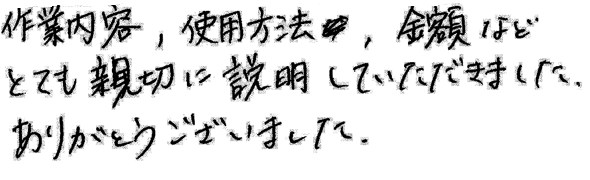 作業内容,使用方法,金額など
とても親切に説明していただきました.
ありがとうございました.